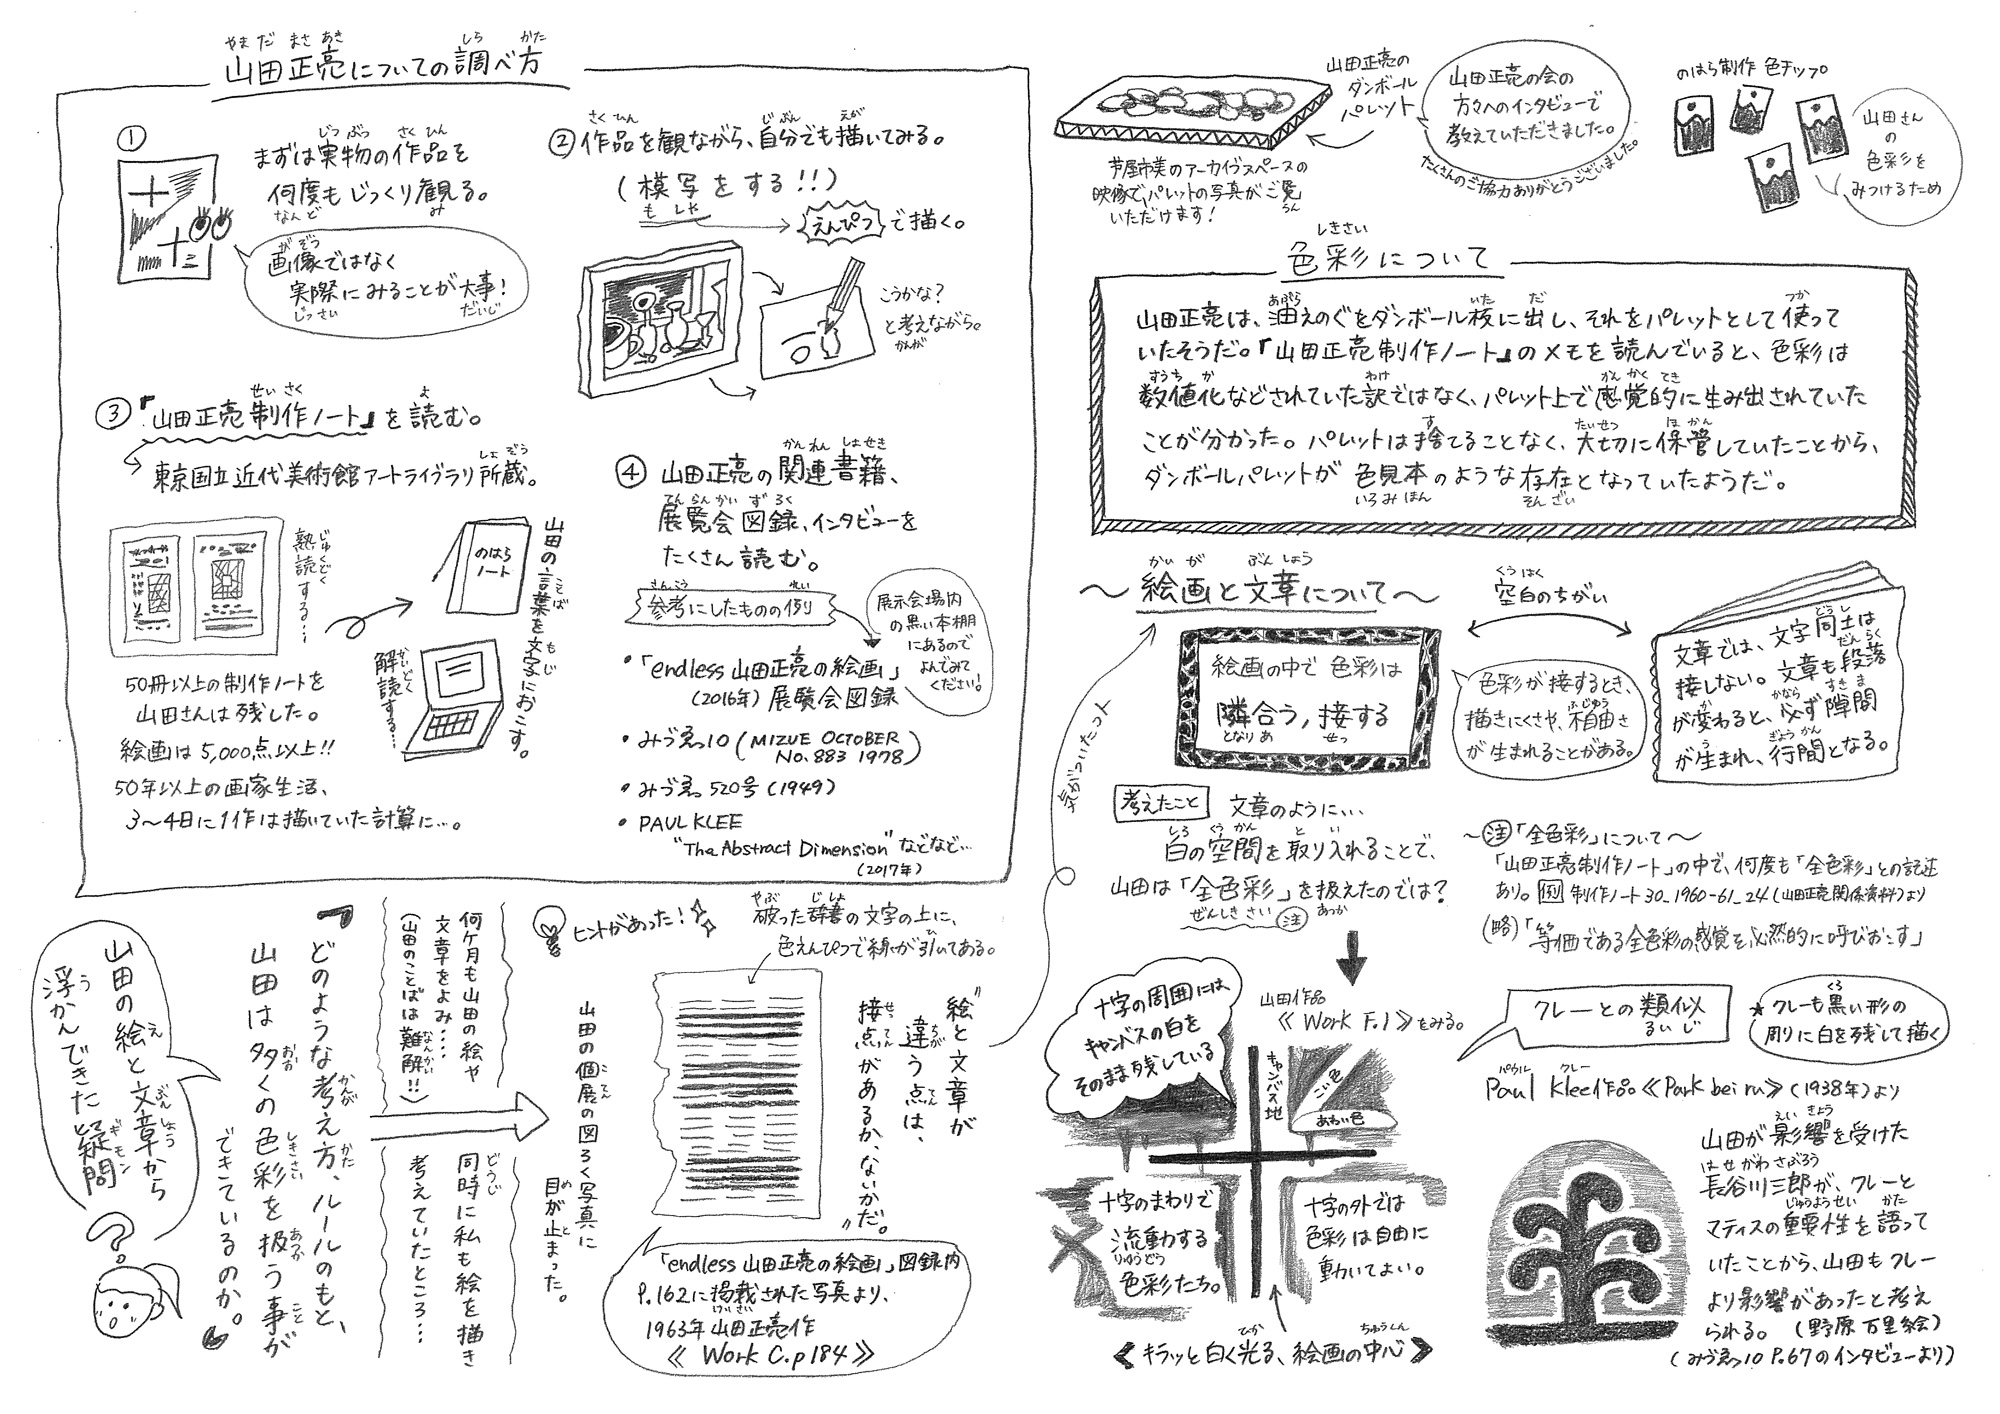 山田正亮についての調べ方
①
まずは実物の作品を
何度もじっくり観る。
画像ではなく
実際にみることが大事!
②作品を観ながら、自分でも描いてみる。
(模写をする!!)
えんぴつで描く。
こうかな?
と考えながら。
③『山田正亮制作ノート』を読む。
東京国立近代美術館アートライブラリ所蔵。
熟読する…
のはら
ノート
山田の言葉を文字におこす。
解読する…
50冊以上の制作ノートを
山田さんは残した。
絵画は5,000点以上!!
50年以上の画家生活、
3〜4日に1作は描いていた計算に…。
④山田正亮の関連書籍、
展覧会図録、インタビューを
たくさん読む。
参考にしたものの例
展示会場内
の黒い本棚
にあるので
よんでみて
ください!
・「endless 山田正亮の絵画」
(2016年)展覧会図録
・みづゑ10(MIZUE OCTOBER
No.883 1978)
・みづゑ520号(1949)
・PAUL KLEE
"The Abstract Dimension"などなど…
(2017年)
山田の絵と文章から
浮かんできた疑問
『どのような考え方、ルールのもと、
山田は多くの色彩を扱う事が
できているのか。』
何ケ月も山田の絵や
文章をよみ….
(山田のことばは難解!!)
同時に私も絵を描き
考えていたところ…
ヒントがあった!
山田の個展の図ろく写真に
目が止まった。
破った辞書の文字の上に、
色えんぴつで線が引いてある。
"絵と文章が
違う点は、
接点があるか、ないかだ。"
「endless 山田正亮の絵画」図録内
P.162に掲載された写真より、
1963年 山田正亮作
《Work C.p184》
気がついたコト
山田正亮の
ダンボール
パレット
山田正亮の会の
方々へのインタビューで
教えていただきました。
たくさんのご協力ありがとうございました。
芦屋市美のアーカイヴスペースの
映像で、パレットの写真がご覧
いただけます!
のはら制作 色チップ。
山田さん
の
色彩を
みつけるため
色彩について
山田正亮は、油えのぐをダンボール板に出し、それをパレットとして使って
いたそうだ。『山田正亮制作ノート』のメモを読んでいると、色彩は
数値化などされていた訳ではなく、パレット上で感覚的に生み出されていた
ことが分かった。パレットは捨てることなく、大切に保管していたことから、
ダンボールパレットが色見本のような存在となっていたようだ。
〜絵画と文章について〜
空白のちがい
絵画の中で色彩は
隣合う,接する
色彩が接するとき、
描きにくさや、不自由さ
が生まれることがある。
文章では、文字同士は
接しない。文章も段落
が変わると、必ず隙間
が生まれ、行間となる。
考えたこと 文章のように…
白の空間を取り入れることで、
山田は「全色彩」を扱えたのでは?
注
〜注「全色彩」について〜
「山田正亮制作ノート」の中で、何度も「全色彩」との記述
あり。例 制作ノート30_1960-61_24(山田正亮関係資料)より
(略)「等価である全色彩の感覚を必然的に呼びおこす」
十字の周囲には、
キャンバスの白を
そのまま残している
山田作品
《Work F.1》をみる。
キャンバス地
こい色
あわい色
十字のまわりで
流動する
色彩たち。
十字の外では
色彩は自由に
動いてよい。
《キラッと白く光る、絵画の中心》
クレーとの類似
★クレーも黒い形の
周りに白を残して描く
Paul Klee作品《Park bei ru》(1938年)より
山田が影響を受けた
長谷川三郎が、クレーと
マティスの重要性を語って
いたことから、山田もクレー
より影響があったと考え
られる。(野原万里絵)
(みづゑ10 P.67のインタビューより)